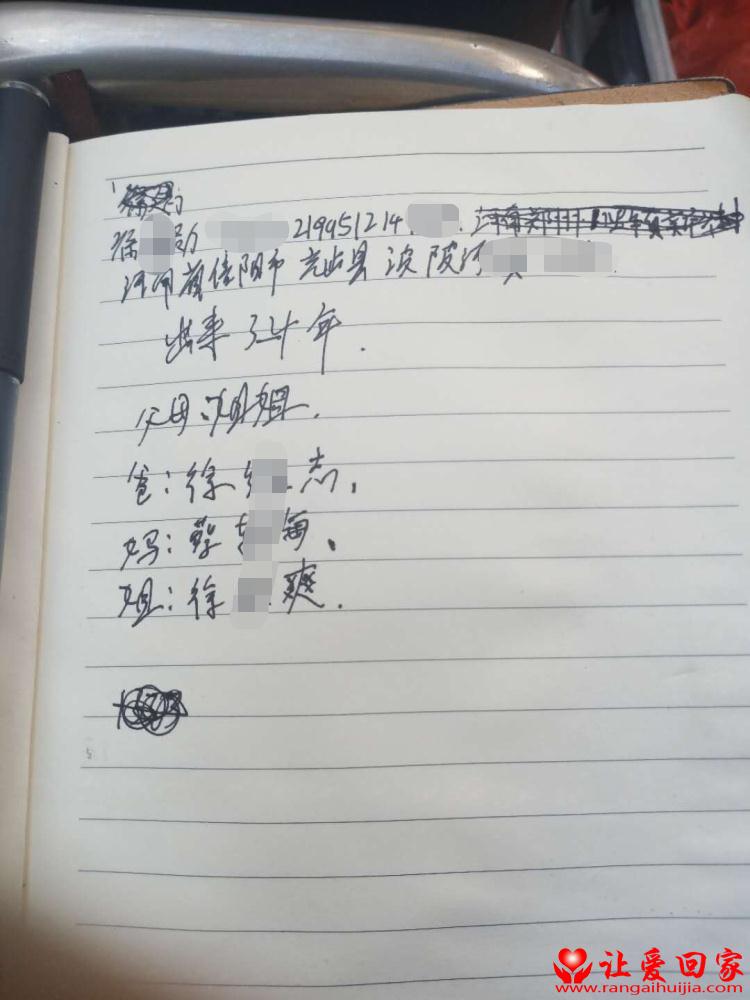 徐勋 219951214
河南省信阳市光山县泼陂河
出来3、4年.
父母、姐姐.
爸:徐志.
妈:蔡梅、
姐:徐爽.
让爱回家
www.rangaihuijia.com